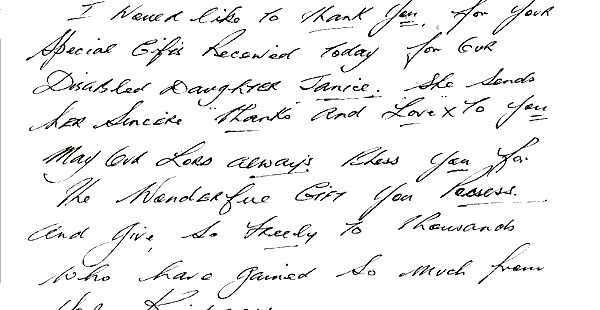 I Would like to thank you, for your
Special Gifts Received today for our
Disabled Daughter Janice. She Sends
her Sincere "thanks" and Love x to you
May Our Lord always Bless you for
The Wonderful Gift You Possess.
And give, so freely to thousands
Who have gained so much from